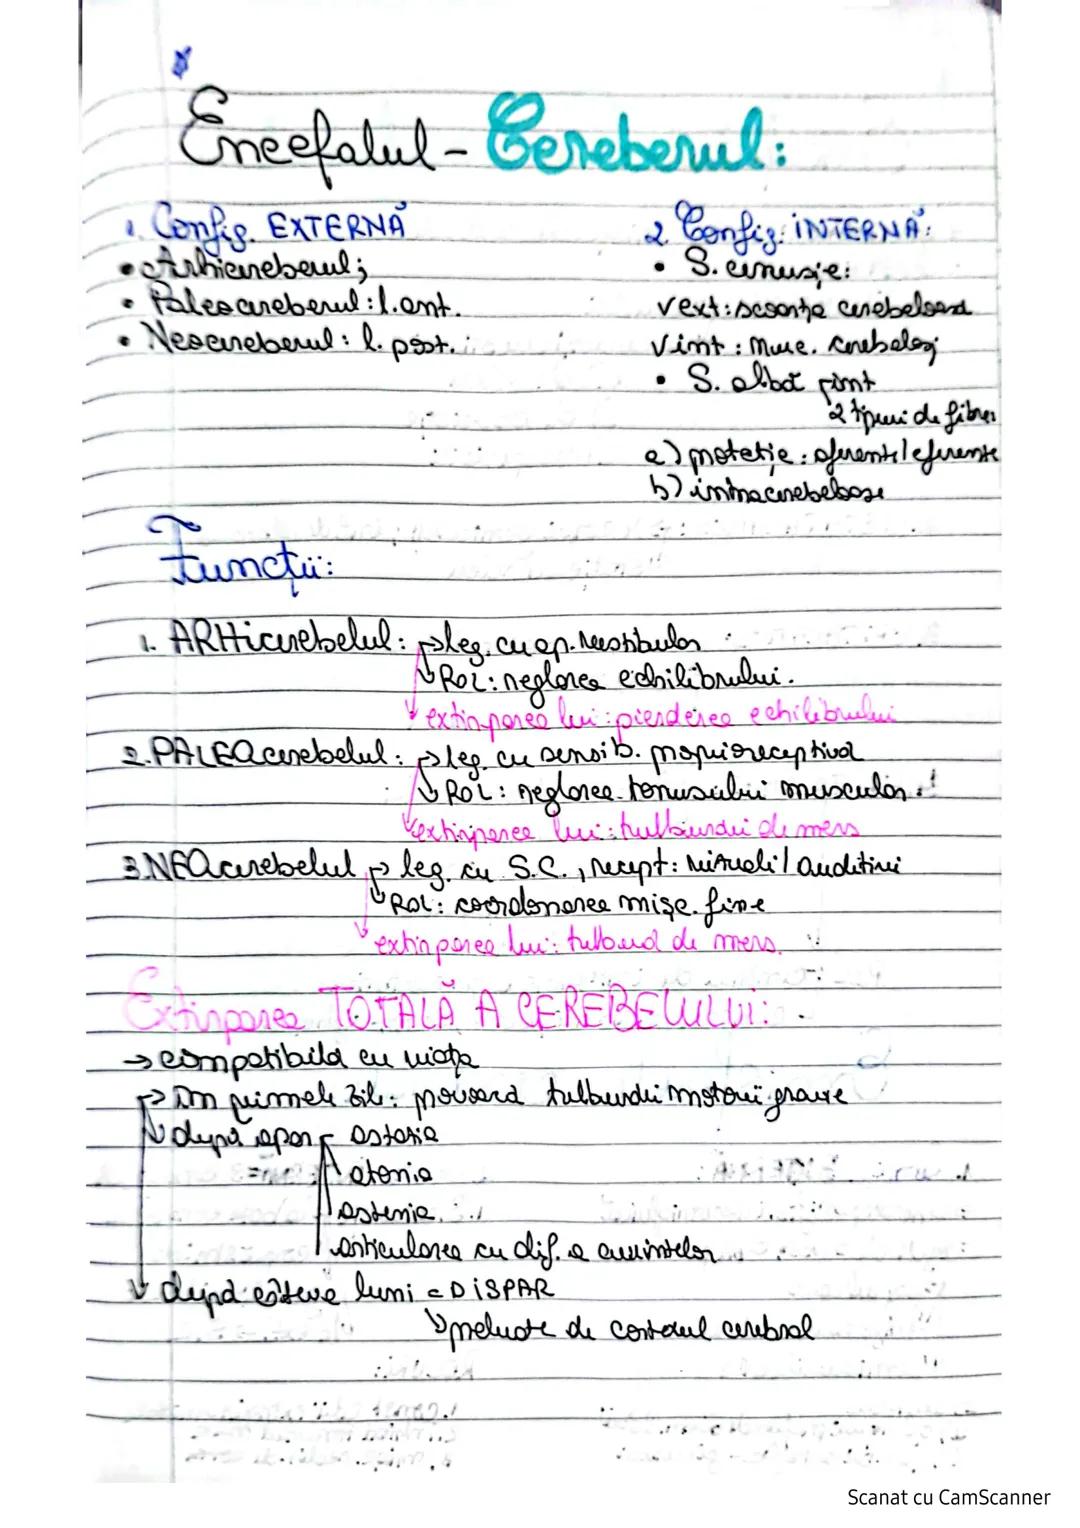 Encefalul - Cereberul:
1. Config. EXTERNĂ
• Arhicereberul;
• Paleocereberul: l. ant.
• Neocereberul: l. post.
2. Config. INTERNĂ:
• S. cenușie:
v ext: scoarța cerebeloasă
v int: nuc. cerebeloși
• S. albă
2 tipuri de fibre:
a) protecție: aferente/eferente
b) intracerebeloase
Funcții:
1. ARHicerebelul: → leg. cu ap. vestibular
↳ Rol: reglarea echilibrului.
extirparea lui: pierderea echilibrului
2. PALEOcerebelul: → leg. cu sensib. proprioceptivă
↳ Rol: reglarea tonusului muscular!
extirparea lui: tulburări de mers
3. NEOcerebelul → leg. cu S.C., recept: vizuali/auditivi
↳ Rol: coordonarea mișc. fine
extirparea lui: tulbură de mers.
Extirparea TOTALĂ A CEREBELULUI:
→ compatibilă cu viața
→ în primele zile: tulburări motorii grave
↳ după apar astazia
atonia
astenia
articularea cu dif. a cuvintelor
↓ după câteva luni = DISPAR
↳ preluate de cortexul cerebral
Scanat cu CamScanner